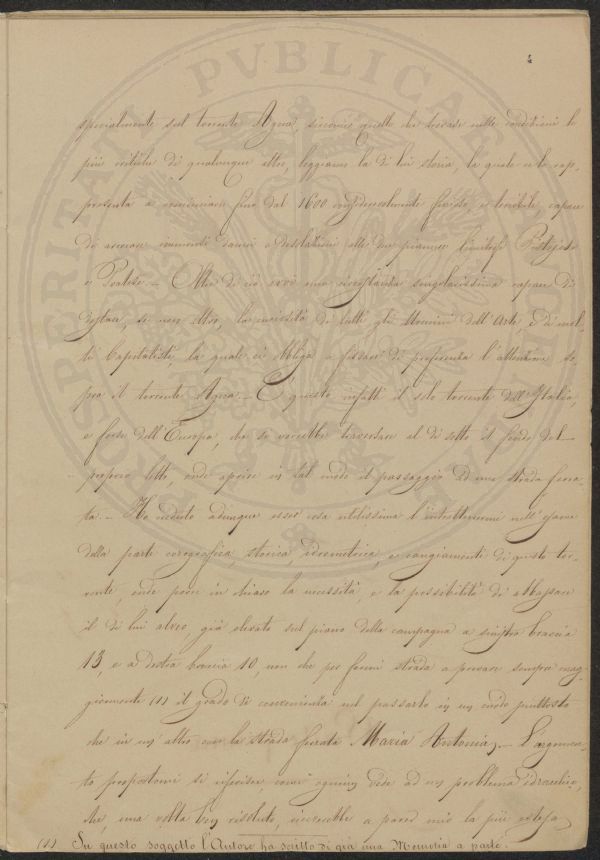 specialmente sul torrente Agna, siccome quello che trovasi nelle condizioni le
più critiche di qualunque altro, leggiamo la di lui storia, la quale ce lo rap-
presenta a cominciare fino dal 1600 considerevolmente funesto, e terribile capace
di arrecare immensi danni e desolazioni alle due pianure limitrofe Pistojese
e Pratese. – Oltre di ciò avvi una circostanza singolarissima capace di
destare, se non altro, la curiosità di tutti gli Uomini dell'Arte, e di mol-
ti Capitalisti, la quale ci obbliga a fissare di preferenza l'attenzione so-
pra il torrente Agna. – È questo infatti il solo torrente dell'Italia,
e forse dell'Europa, che si vorrebbe traversare al di sotto il fondo del
proprio letto, onde aprire in tal modo il passaggio ad una strada ferra-
ta. – Ho creduto adunque esser cosa utilissima l'intrattenermi nell'esame
della parte corografica, storica, idrometrica, e cangiamenti di questo tor-
rente, onde porre in chiaro la necessità, e la possibilità di abbassare
il di lui alveo, già elevato sul piano della campagna a sinistra braccia
13, e a destra braccia 10, non che per farmi strada a provare sempre mag-
giormente (1) il grado di convenienza nel passarlo in un modo piuttosto
che in un altro con la strada ferrata Maria Antonia. – L'argomen-
to propostomi si riferisce, come ognun vede ad un problema idraulico,
che, una volta ben risoluto, rec
PVBLICAE
PROSPERITATI
4
(1) Su questo soggetto l'Autore ha scritto di già una Memoria a parte.